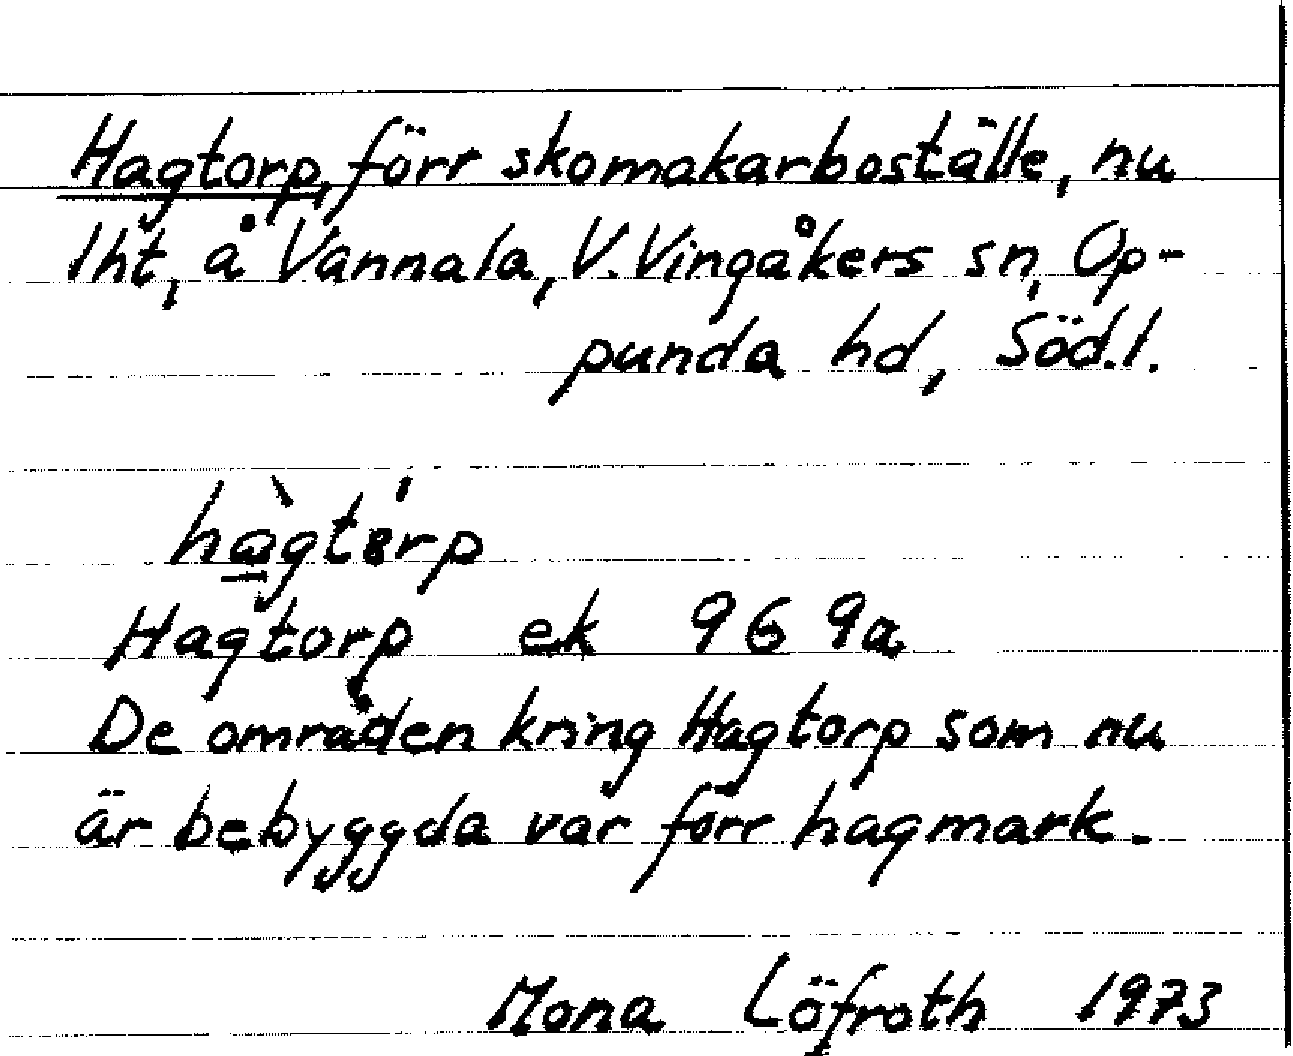 Hagtorp, förr skomakarboställe, nu
lht, å Vannala, V. Vingåkers sn, Op-
punda hd, Söd.l.
Hagtorp ek 9G 9a
De områden kring Hagtorp som nu
är bebyggda var förr hagmark.
Mona Löfroth 1973